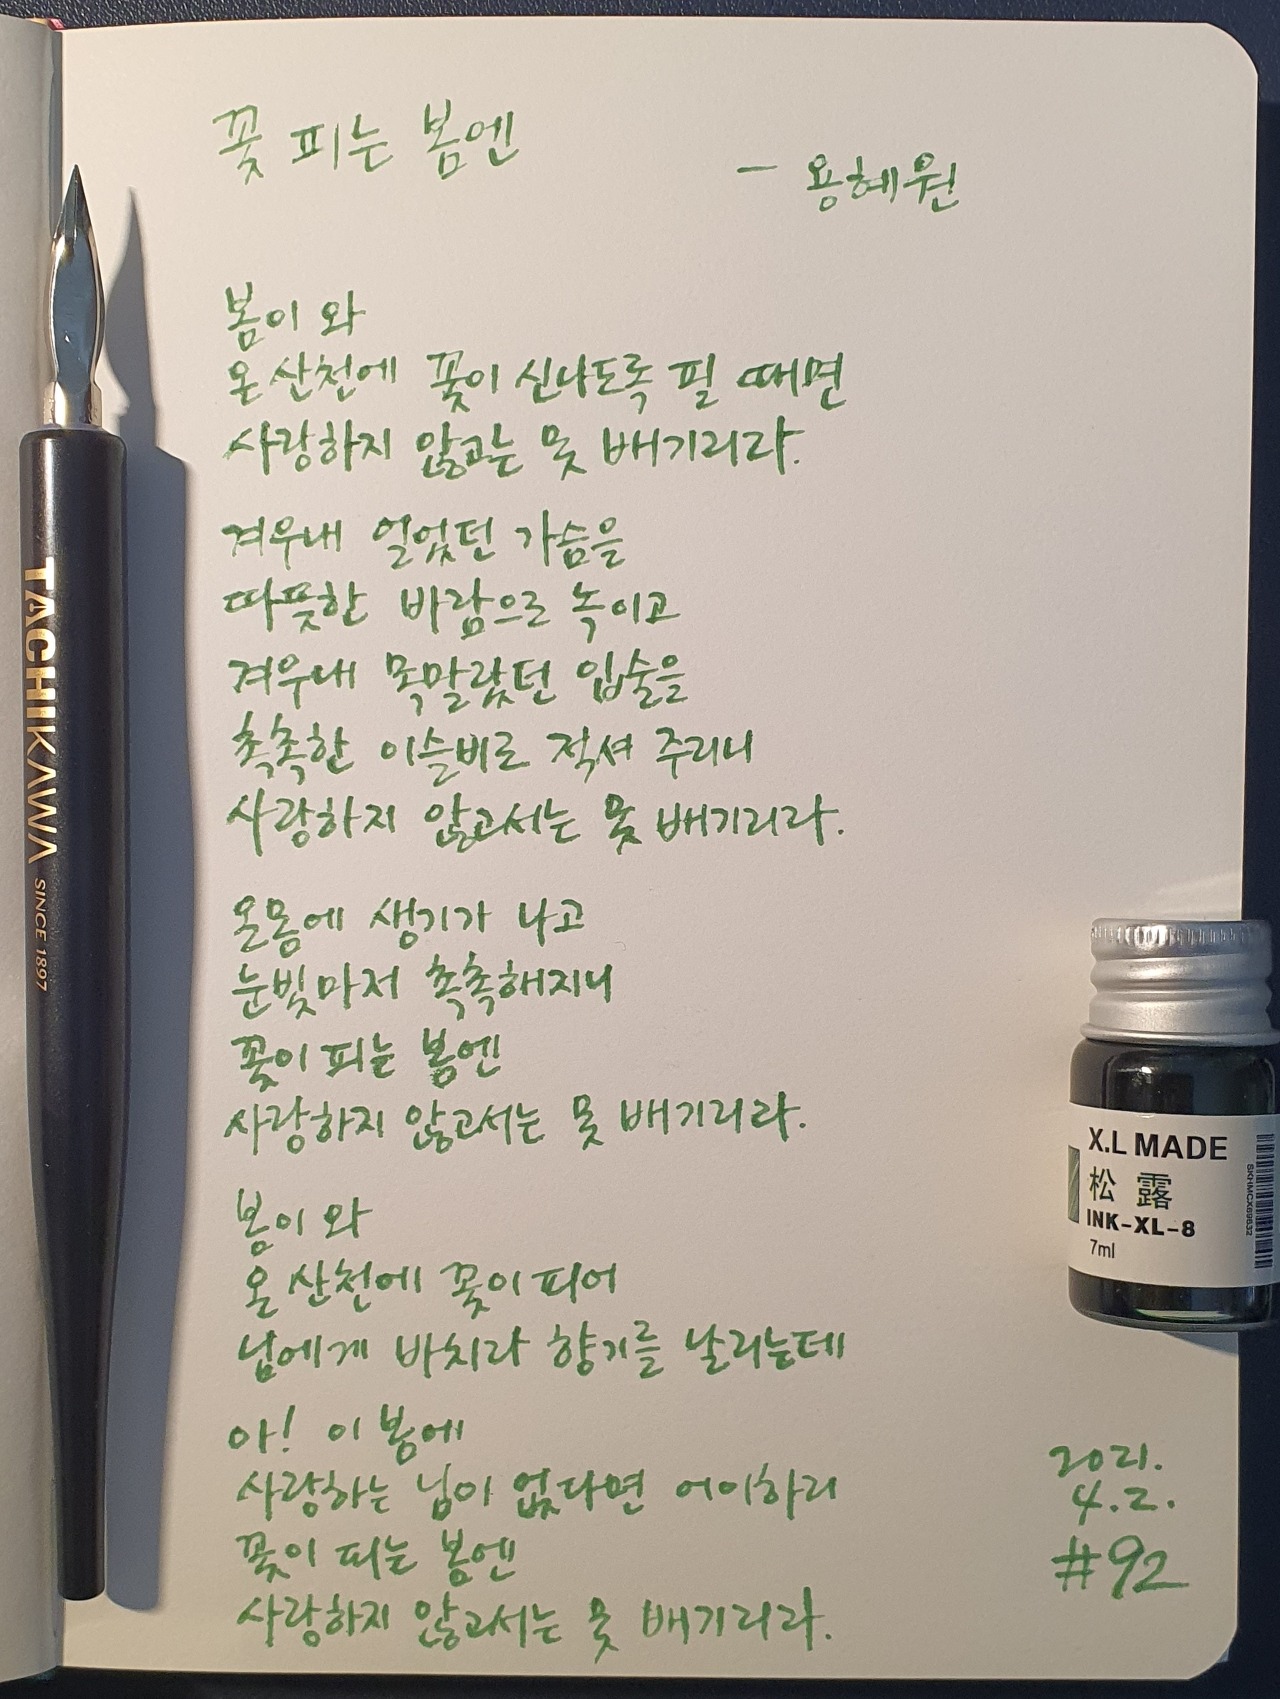 꽃 피는 봄엔
- 용혜원
봄이 와
온 산천에 꽃이 신나도록 필 때면
사랑하지 않고는 못 배기리라.
겨우내 얼었던 가슴을
따뜻한 바람으로 녹이고
겨우내 목말랐던 입술을
촉촉한 이슬비로 적셔 주리니
사랑하지 않고서는 못 배기리라.
온몸에 생기가 나고
눈빛마저 촉촉해지니
꽃이 피는 봄엔
사랑하지 않고서는 못 배기리라.
봄이 와
온 산천에 꽃이 피어
님에게 바치라 향기를 날리는데
아! 이 봄에
사랑하는 님이 없다면 어이하리
꽃이 피는 봄엔
사랑하지 않고서는 못 배기리라.
2021.
4.2.
#92
TACHIKAWA SINCE 1897
X.L MADE
松 露
INK-XL-8
7ml
SKHMCX69632